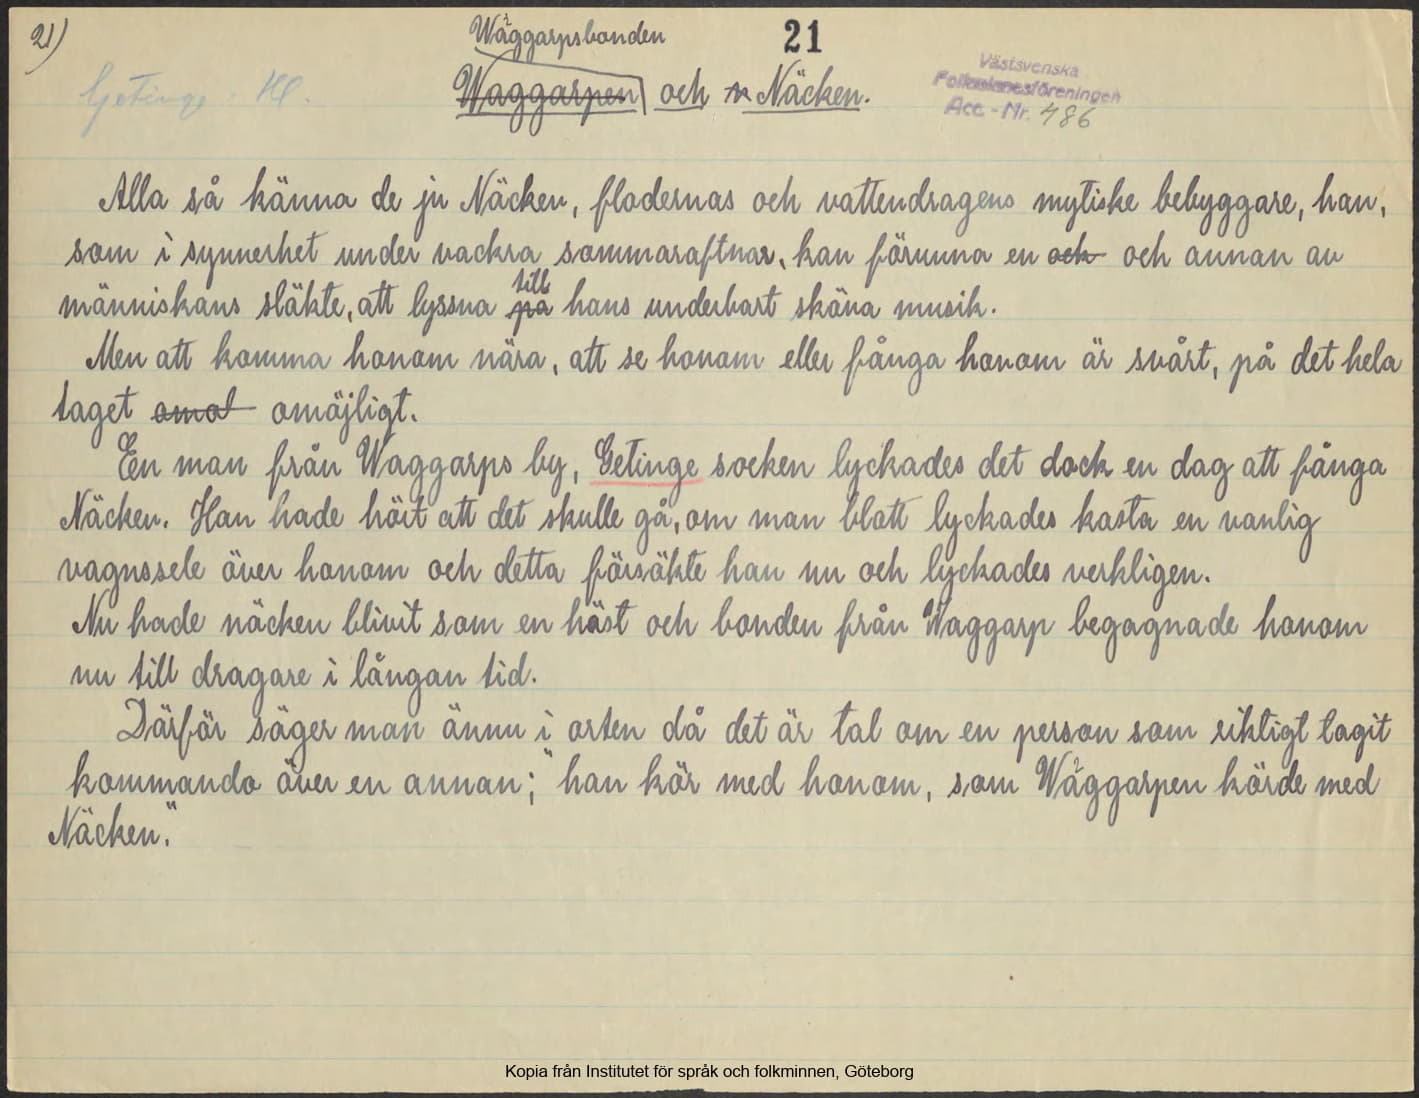 21)
Wäggarpsbonden
21
Getinge. Hl.
Waggarpen och n Näcken.
Västsvenska
Folkminnesföreningen
Acc.-Nr. 486
Alla så känna de ju Näcken, flodernas och vattendragens mytiske bebyggare, han,
som i synnerhet under vackra sommaraftnar, kan förunna en och och annan av
till
människans släkte, att lyssna på hans underbart sköna musik.
Men att komma honom nära, att se honom eller fånga honom är svårt, på det hela
taget omol omöjligt.
En man från Waggarps by, Getinge socken lyckades det dock en dag att fånga
Näcken. Han hade hört att det skulle gå, om man blott lyckades kasta en vanlig
vagnssele över honom och detta försökte han nu och lyckades verkligen.
Nu hade näcken blivit som en häst och bonden från Waggarp begagnade honom
nu till dragare i långan tid.
Därför säger man ännu i orten då det är tal om en person som riktigt tagit
kommando över en annan; "han kör med honom, som Wäggarpen körde med
Näcken."
Kopia från Institutet för språk och folkminnen, Göteborg